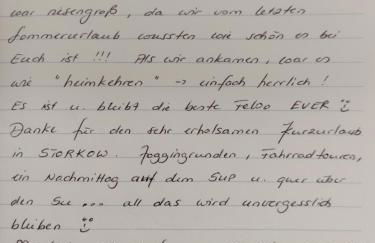 war riesengroß, da wir vom letzten
Sommerurlaub wussten wie schön es bei
Euch ist !!! Als wir ankamen, war es
wie "heimkehren" → einfach herrlich !
Es ist u. bleibt die beste FeWo EVER ☺
Danke für den sehr erholsamen Kurzurlaub
in STORKOW. Joggingrunden, Fahrradtouren,
ein Nachmittag auf dem SUP u. quer über
den See ... all das wird unvergesslich
bleiben ☺